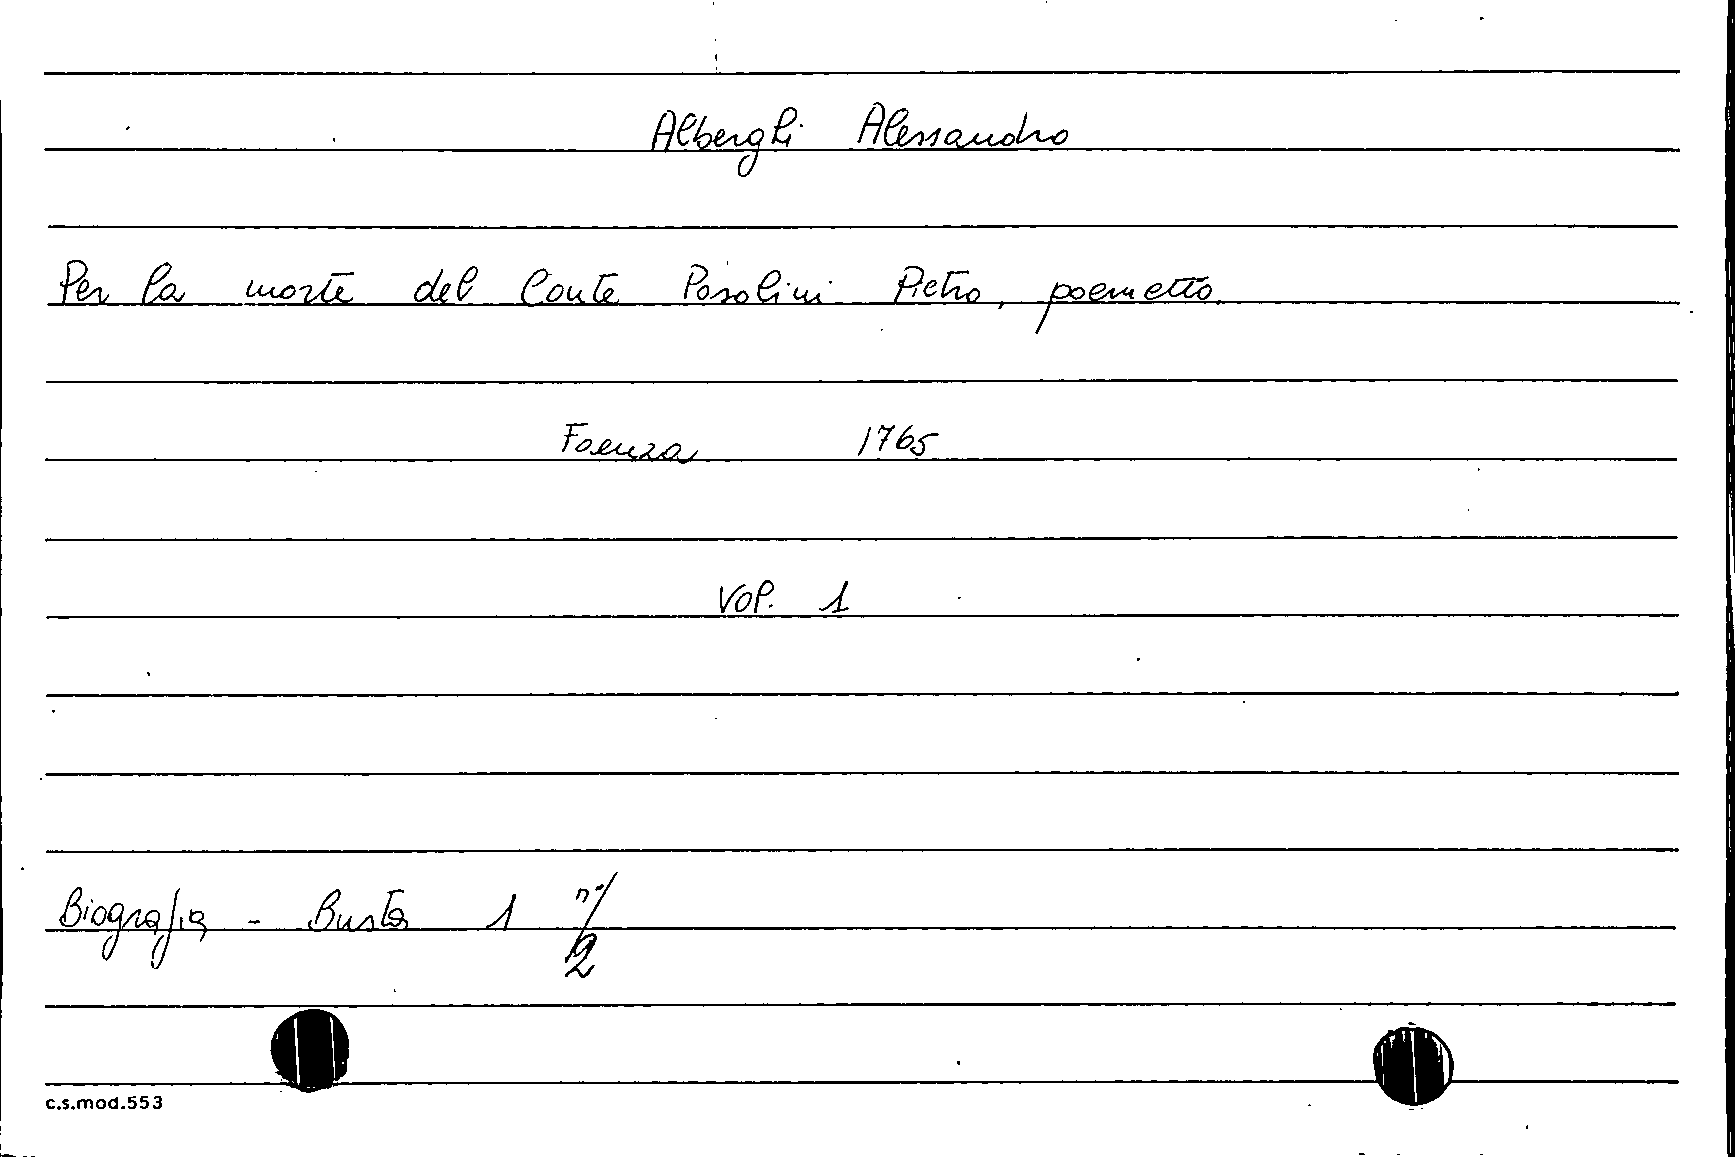 Alberghi Alessandro
Per la morte del Conte Pasolini Pietro, poemetto.
Faenza 1765
Vol. 1
Biografia - Busta 1 n./2
c.s.mod.553